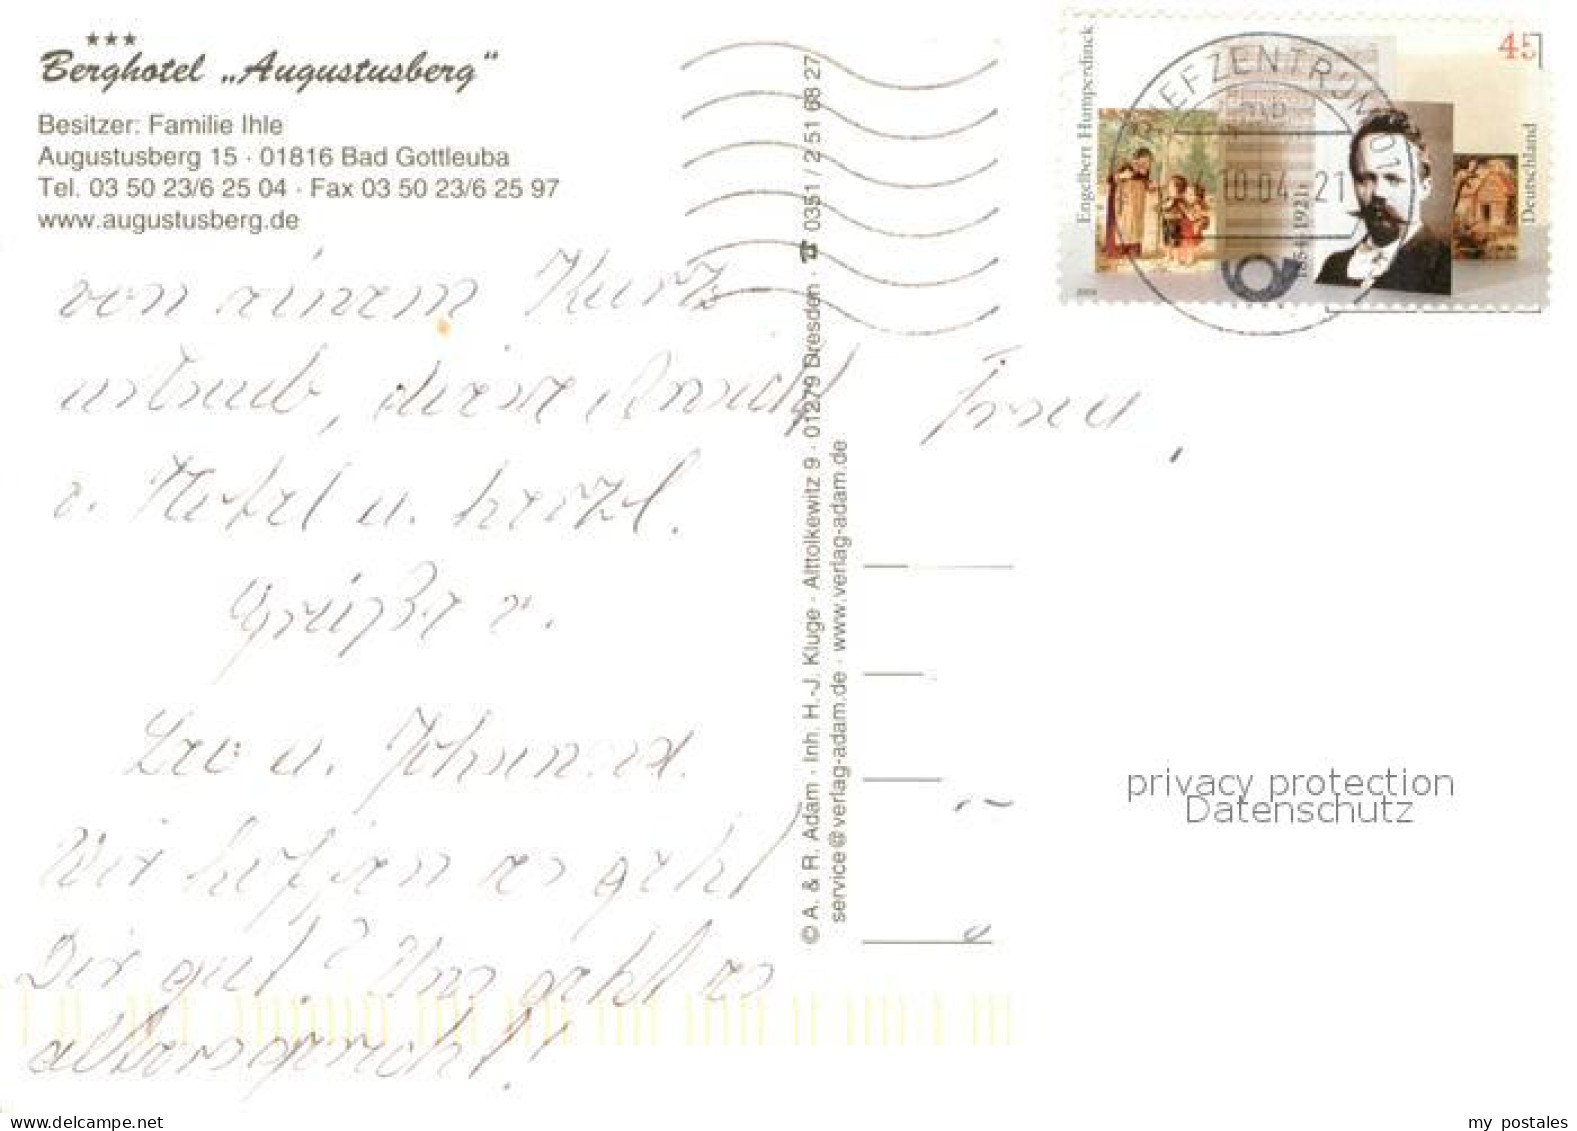 ★★★
Berghotel „Augustusberg“
Besitzer: Familie Ihle
Augustusberg 15 · 01816 Bad Gottleuba
Tel. 03 50 23/6 25 04 · Fax 03 50 23/6 25 97
www.augustusberg.de
von einem Kurz
urlaub, diese Ansicht
v. Hotel u. herzl.
Grüße v.
u.
Wir hoffen es geht
Dir gut? Uns geht es
altersgerecht!
© A. & R. Adam · Inh. H.-J. Kluge · Alttolkewitz 9 · 01279 Dresden · ☎ 0351 / 2 51 68 27
service@verlag-adam.de · www.verlag-adam.de
Engelbert Humperdinck
1854-1921
45
Deutschland
BRIEFZENTRUM 01
10.04 21
Frau
privacy protection
Datenschutz
www.delcampe.net
my_postales